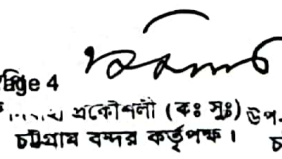 Page 4
প্রকৌশলী (কঃ সুঃ) উপ
চট্টগ্রাম বন্দর কর্তৃপক্ষ।